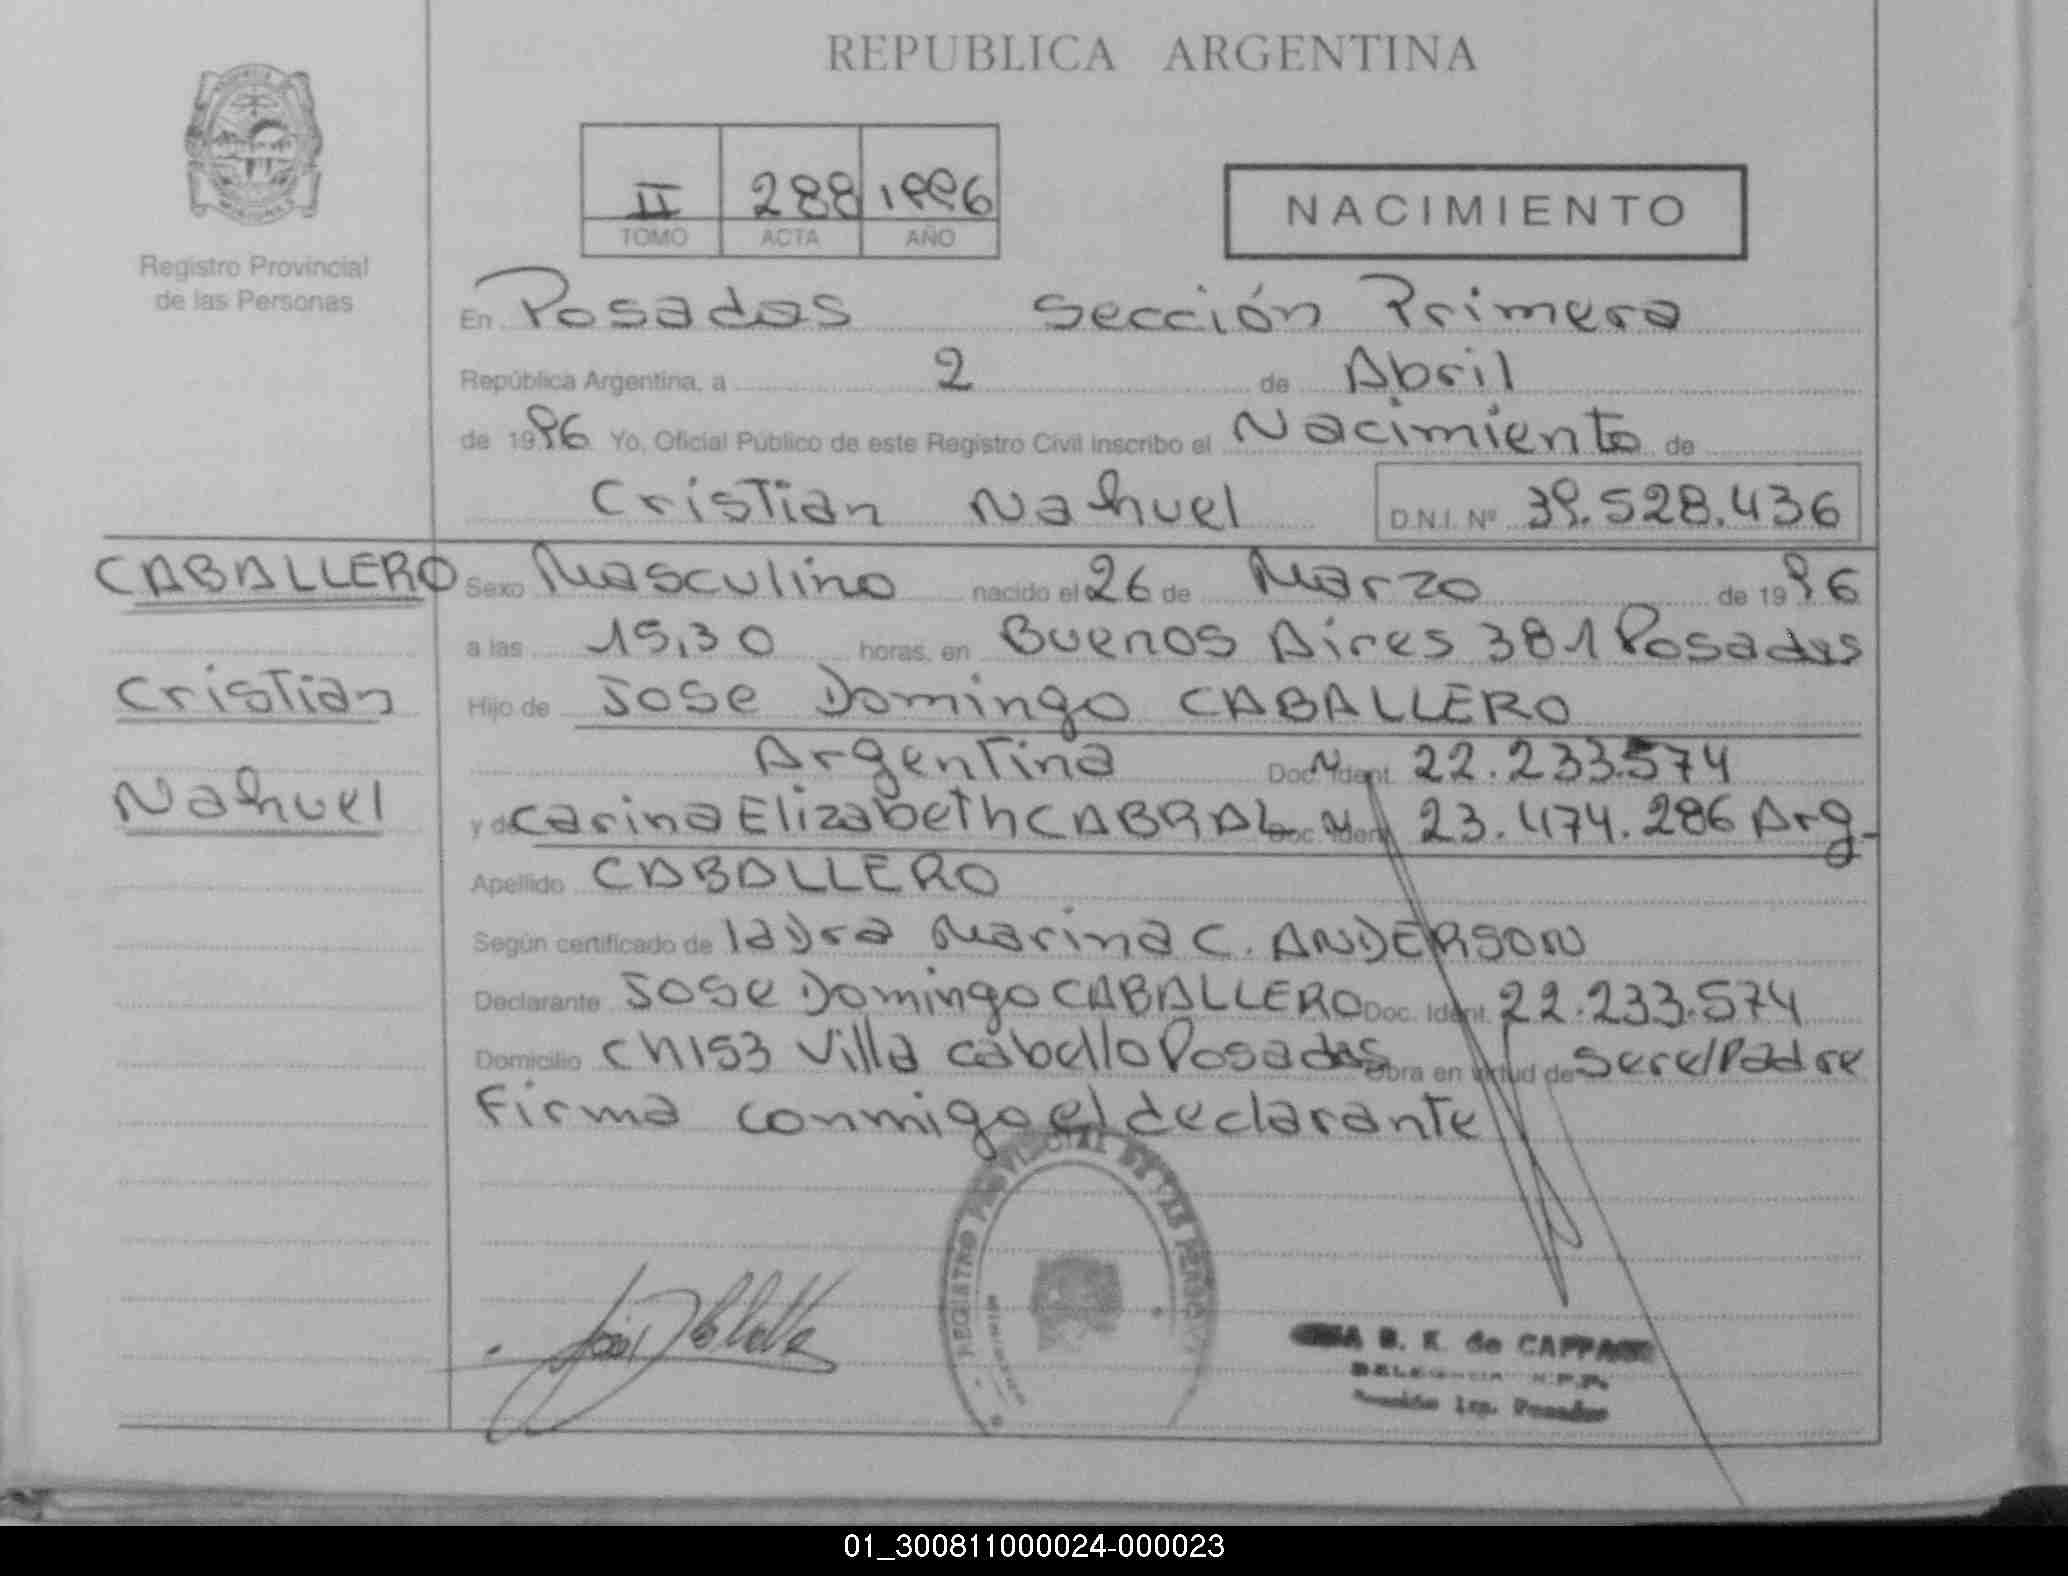 REPUBLICA ARGENTINA
II 288 1996
TOMO ACTA AÑO
NACIMIENTO
Registro Provincial
de las Personas
En Posadas Sección Primera
República Argentina, a 2 de Abril
de 1996 Yo, Oficial Público de este Registro Civil inscribo el Nacimiento de
Cristian Nahuel D.N.I. Nº 39.528.436
CABALLERO
Cristian
Nahuel
Sexo Masculino nacido el 26 de Marzo de 1996
a las 15,30 horas, en Buenos Aires 381 Posadas
Hijo de Jose Domingo CABALLERO
Argentina Doc. Ident. N 22.233.574
y de Carina Elizabeth CABRAL Doc. Ident. N 23.474.286 Arg.
Apellido CABALLERO
Según certificado de la Dra Marina C. ANDERSON
Declarante Jose Domingo CABALLERO Doc. Ident. 22.233.574
Domicilio CH153 Villa Cabello Posadas Obra en virtud de Ser el Padre
Firma conmigo el declarante
REGISTRO PROVINCIAL DE LAS
B. K. de
Sección 1ra. Posadas
01_300811000024-000023